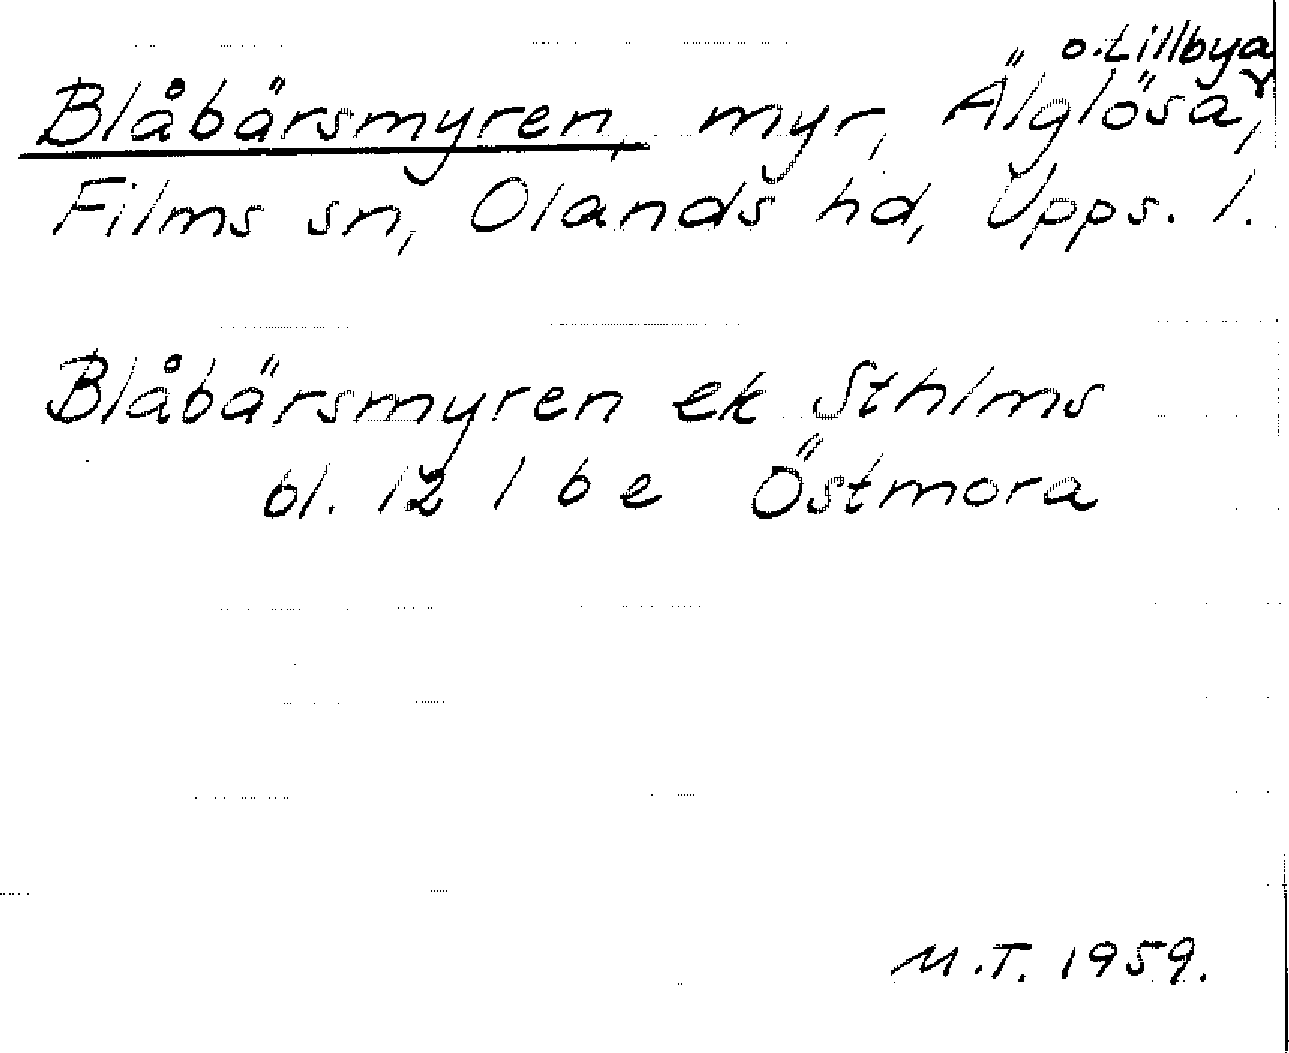 o. Lillbya
Blåbärsmyren, myr, Älglösa,
Films sn, Olands hd, Upps. l.
Blåbärsmyren ek Sthlms
bl. 12 l b e Östmora
M.T. 1959.